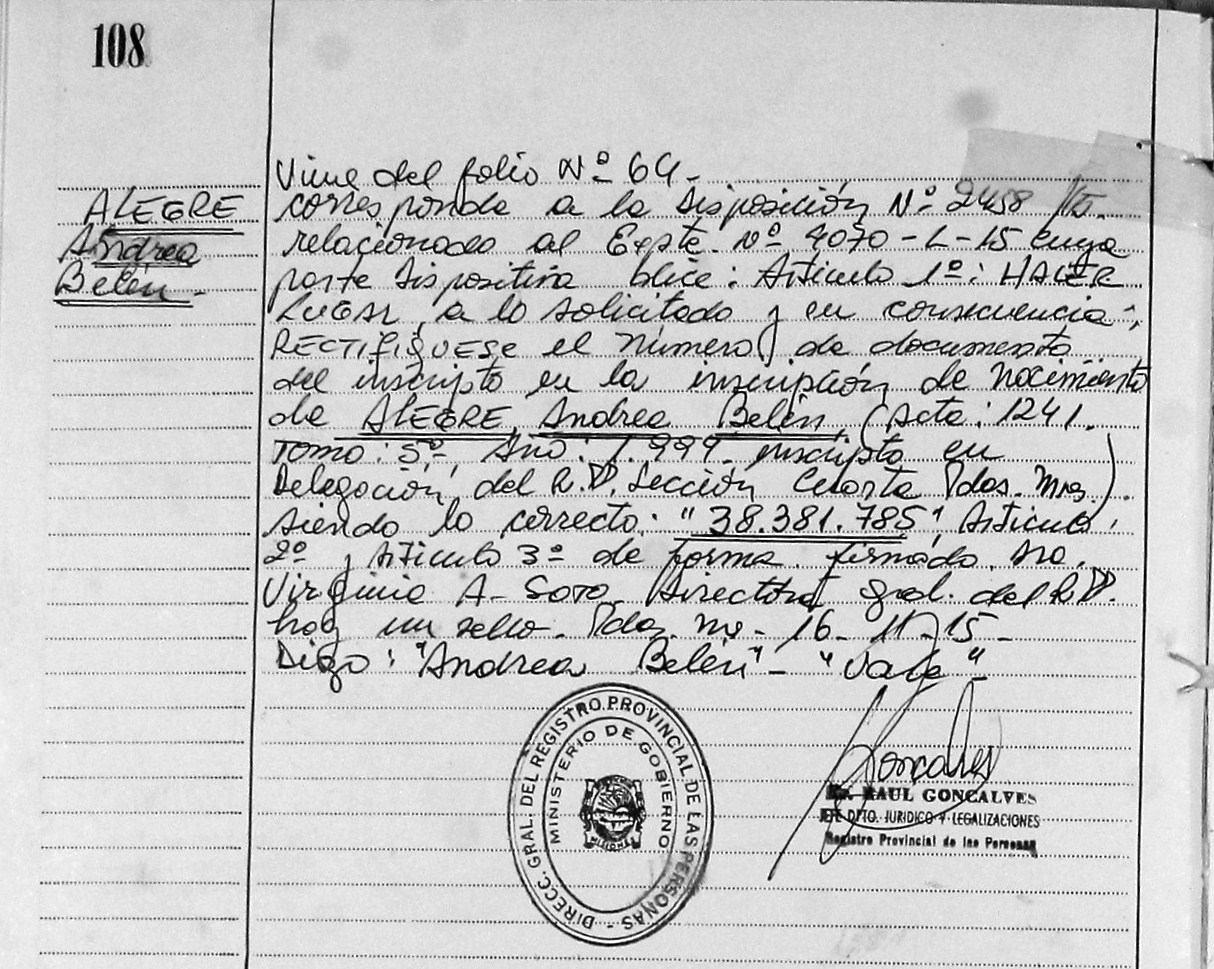 108
ALEGRE
Andrea
Belén -
Viene del folio Nº 64 -
corresponde a la Disposición Nº 2458 /15.
relacionado al Expte. Nº 4070 - L - 15 cuya
parte Dispositiva dice: Articulo 1º: HACER
LUGAR, a lo solicitado y en consecuencia,
RECTIFIQUESE el número de documento
del inscripto en la inscripción de nacimiento
de ALEGRE, Andrea Belén, (Acta: 1241.
Tomo: 5º, Año: 1.999. inscripta en
Delegación del R.P. Sección Cuarta Pdas. Mnes.)
siendo lo correcto: "38.381.785" Articulo
2º y Articulo 3º de forma. firmado. Dra.
Virginia A. Soto Directora Gral. del R.P.
hay un sello. Pdas. Ms - 16 - 11 - 15 -
Digo: "Andrea Belén" - "Vale"
DIRECC. GRAL. DEL REGISTRO PROVINCIAL DE LAS PERSONAS -
MINISTERIO DE GOBIERNO
MISIONES
Goncalves
Dr. RAUL GONCALVES
JEFE DPTO. JURIDICO Y LEGALIZACIONES
Registro Provincial de las Personas